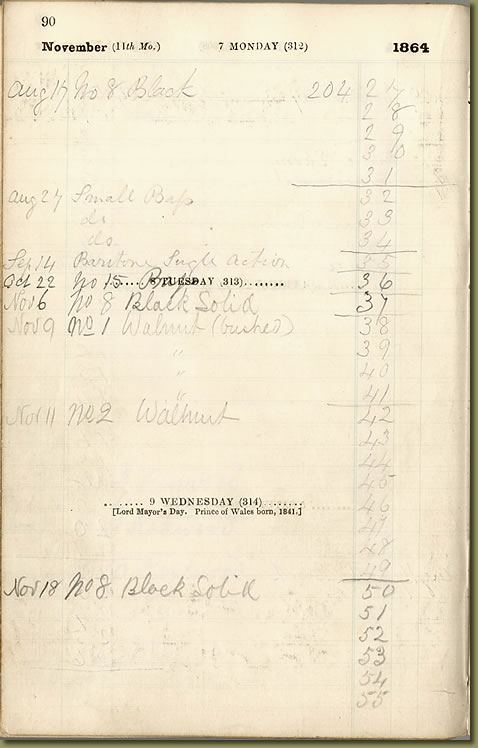 90
November (11th Mo.) 7 MONDAY (312) 1864
Aug 17 No 8 Black 204 27
28
29
30
31
Aug 27 Small Bass 32
do 33
do 34
Sep 14 Baritone Single Action 35
Oct 22 No 15 36
........ TUESDAY (313)........
Nov 6 No 8 Black Solid 37
Nov 9 No 1 Walnut (bushed) 38
" 39
" 40
" 41
Nov 11 No 2 Walnut 42
43
44
45
........ 9 WEDNESDAY (314) ........ 46
[Lord Mayor's Day. Prince of Wales born, 1841.]
47
48
49
Nov 18 No 8 Black Solid 50
51
52
53
54
55